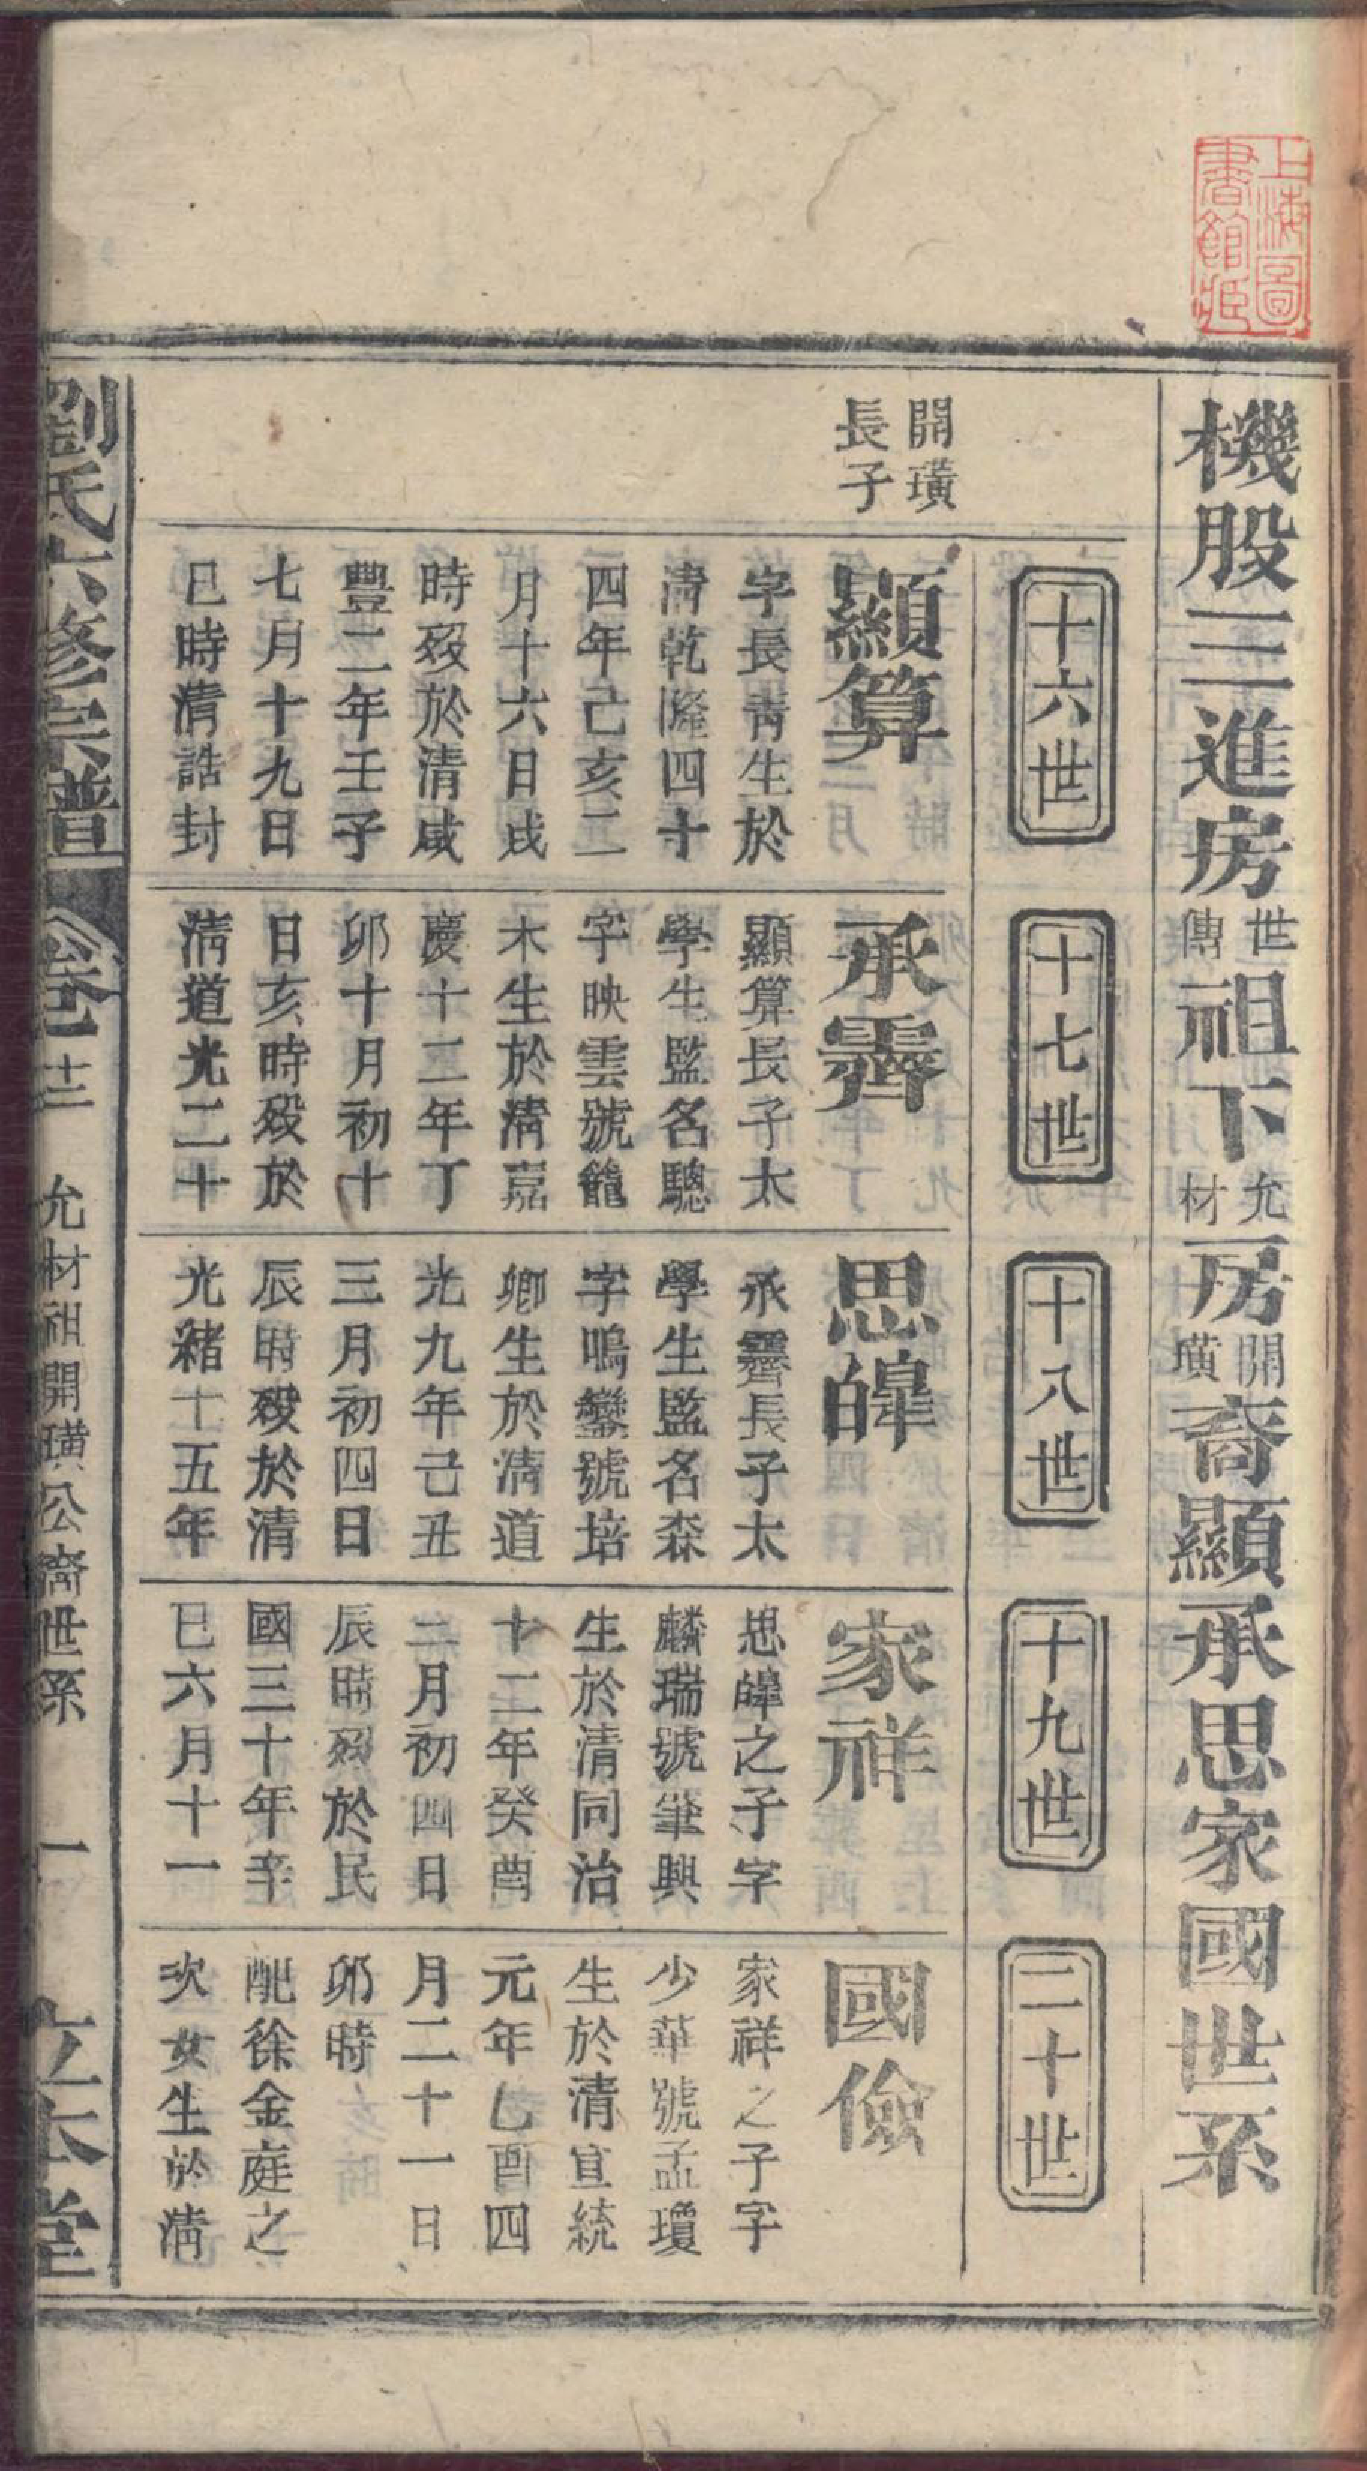 上海圖
書館藏
機股三進房世傳祖下允材房開璜裔顯承思家國世系
十六世
十七世
十八世
十九世
二十世
開璜
長子
顯算
字長青生於
清乾隆四十
四年己亥二
月十六日戌
時歿於清咸
豐二年壬子
七月十九日
巳時清誥封
承霽
顯算長子太
學生監名驄
字映雲號籠
木生於清嘉
慶十二年丁
卯十月初十
日亥時歿於
清道光二十
思皡
承霽長子太
學生監名森
字鳴鑾號培
卿生於清道
光九年己丑
三月初四日
辰時歿於清
光緒十五年
家祥
思皡之子字
麟瑞號肇興
生於清同治
十二年癸酉
二月初四日
辰時歿於民
國三十年辛
巳六月十一
國儉
家祥之子字
少華號孟瓊
生於清宣統
元年己酉四
月二十一日
卯時
配徐金庭之
次女生於清
劉氏六修宗譜
卷十二
允材祖開璜公裔世系
一
立本堂